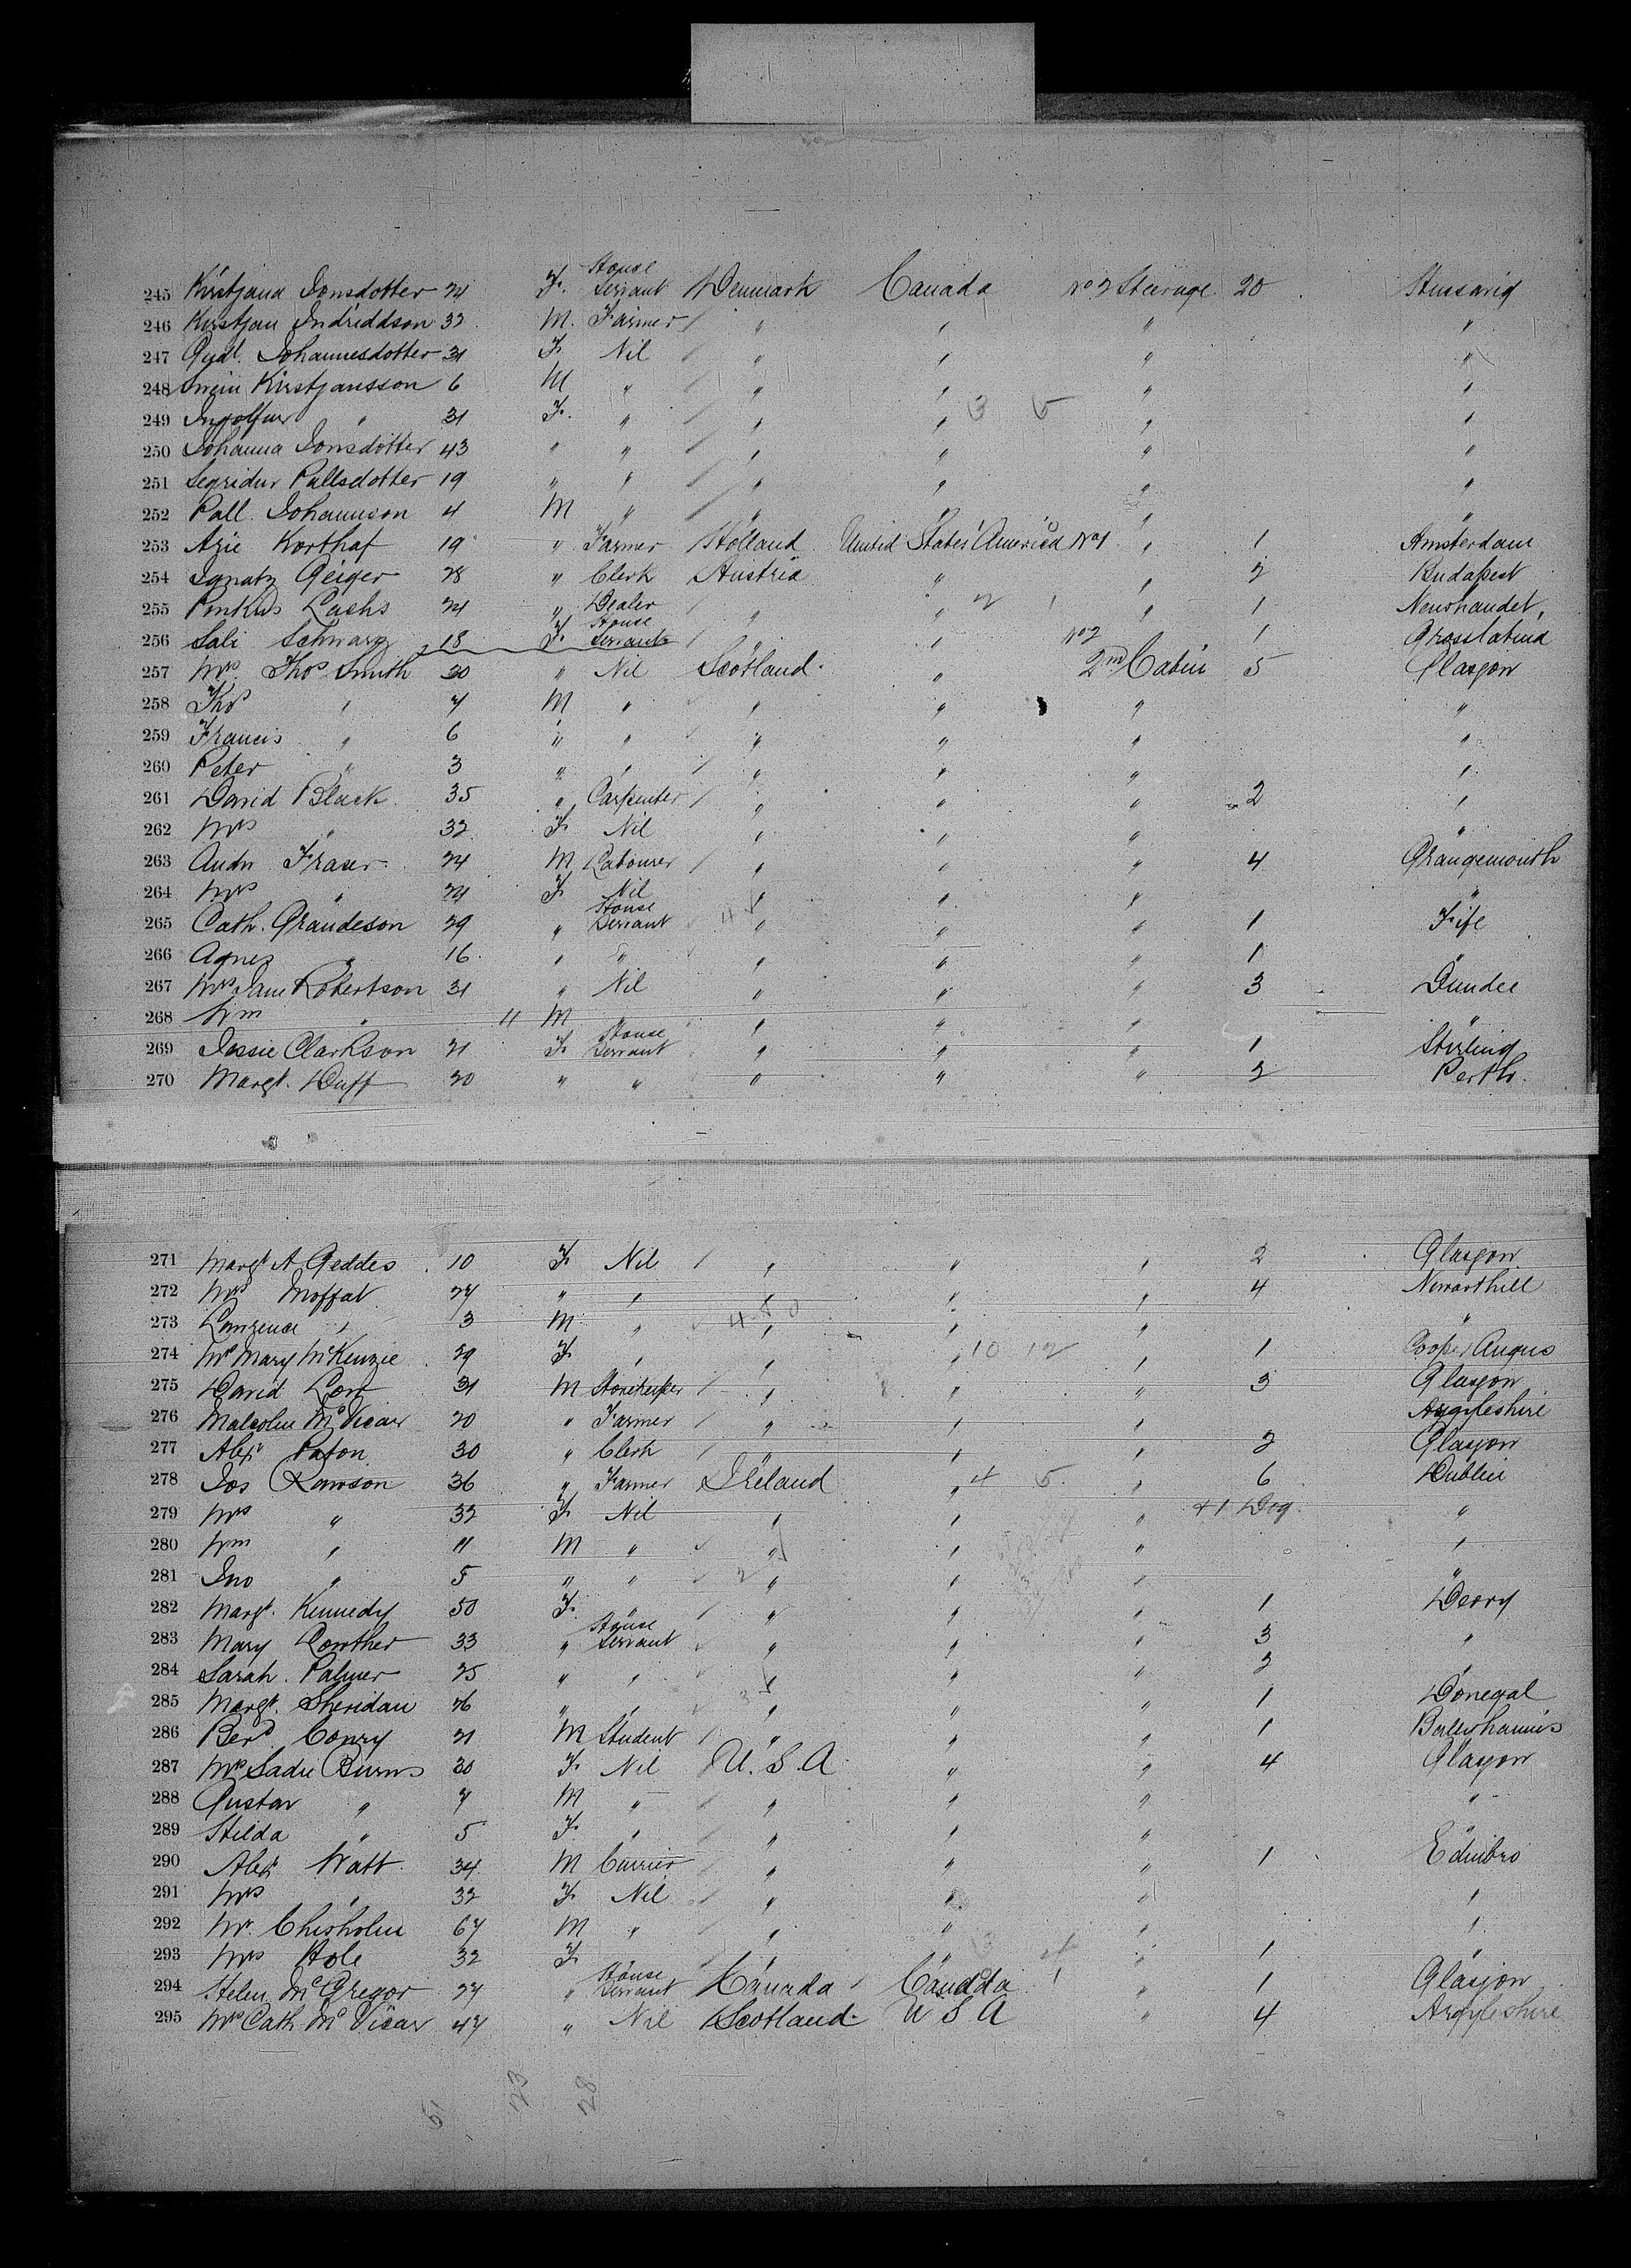 245 Kirstjana Jonsdotter 24 F. House Servant Denmark Canada No 2 Steerage 20
246 Kirstjan Indriddson 32 M. Farmer " " " "
247 Gudl. Johannesdotter 31 F. Nil " " " "
248 Kirstjansson 6 M " " " " "
249 Ingolfur " F. " " " " "
250 Johanna Jonsdotter 43 " " " " " "
251 Segridur Pallsdotter 19 " " " " " "
252 Pall Johannson 4 M " " " " "
253 Azie Korthaf 19 " Farmer Holland United States America No 1 " 1 Amsterdam
254 Ignatz Geiger 28 " Clerk Austria " " 2 Budapest
255 Pinkus Lachs 24 " Dealer " " " 1
256 Sali Schwarz 18 F. House Servant " " No 2 1
257 Mrs Thos Smith 30 " Nil Scotland " 2nd Cabin 5 Glasgow
258 Thos " 7 M " " " " "
259 Francis " 6 " " " " " "
260 Peter " 3 " " " " " "
261 David Black 35 " Carpenter " " " 2 "
262 Mrs " 32 F. Nil " " " "
263 Andw Fraser 24 M Labourer " " " 4 Grangemouth
264 Mrs " 24 F. Nil " " " "
265 Cath. Grandeson 29 " House Servant " " " 1 Fife
266 Agnes " 16 " " " " " 1 "
267 Mrs Jane Robertson 31 " Nil " " " 3 Dundee
268 Wm " 11 M " " " " "
269 Jessie Clarkson 21 F. House Servant " " " 1 Stirling
270 Margt. Duff 20 " " " " " 2 Perth
271 Margt A Geddes 10 F. Nil " " " 2 Glasgow
272 Mrs Moffat 27 " " " " " 4 Newarthill
273 Lawrence " 3 M " " " " "
274 Mrs Mary McKenzie 29 F. " " " " 1 Angus
275 David Low 31 M Storekeeper " " " 3 Glasgow
276 Malcolm McVicar 20 " Farmer " " " Argyleshire
277 Alexr Paton 30 " Clerk " " " 2 Glasgow
278 Jos Rawson 36 " Farmer Ireland " " 6 Dublin
279 Mrs " 32 F. Nil " " " +1 Dog "
280 Wm " 11 M " " " " "
281 Jno " 5 " " " " " "
282 Margt. Kennedy 50 F. " " " " 1 Derry
283 Mary Lowther 33 " House Servant " " " 3 "
284 Sarah Palmer 25 " " " " " 2 "
285 Margt. Sheridan 26 " " " " " 1 Donegal
286 Berd. Conry 21 M Student " " " 1
287 Mrs Sadie Burns 30 F. Nil U.S.A " " 4 Glasgow
288 Gustav " 7 M " " " " "
289 Hilda " 5 F. " " " " "
290 Alexr Watt 34 M Currier " " " 1 Edinbro
291 Mrs " 32 F. Nil " " " "
292 Mr. Chisholm 67 M " " " " "
293 Mrs Hole 32 F. " " " 1 "
294 Helen McGregor 27 " House Servant Canada Canada " 1 Glasgow
295 Mrs Cath McVicar 47 " Nil Scotland U S A " 4 Argyleshire
51 23 28